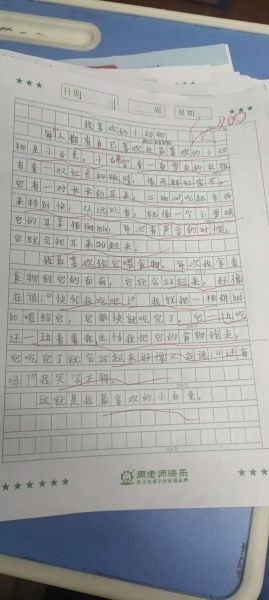 日期
周
星期
我喜欢的小动物
每人都有自己喜欢我最喜欢的小动
物是小白兔，小白兔有一身雪白的衣服
有着一双红色的眼睛，像两颗红宝石。
它有一对长长的耳朵。三瓣嘴吃起东西
来特别快，从远处看，就像一个小雪球
它的耳朵很，每次有声音的时候，
它就会把耳朵起来。
我最喜欢给它喂食物，每次我拿着
食物到它的面前，它就会站起来，好像
在说：“快给我吃吧！”我就把一根胡luo
bo喂给它，它很快就吃完了，它一边吃
还一边看着我生怕我把它的食物抱走，
它吃完了就会站起来好像又在说：“还有
吗？”我哭笑不得。
这就是我最喜欢的小白兔。
周老师快乐